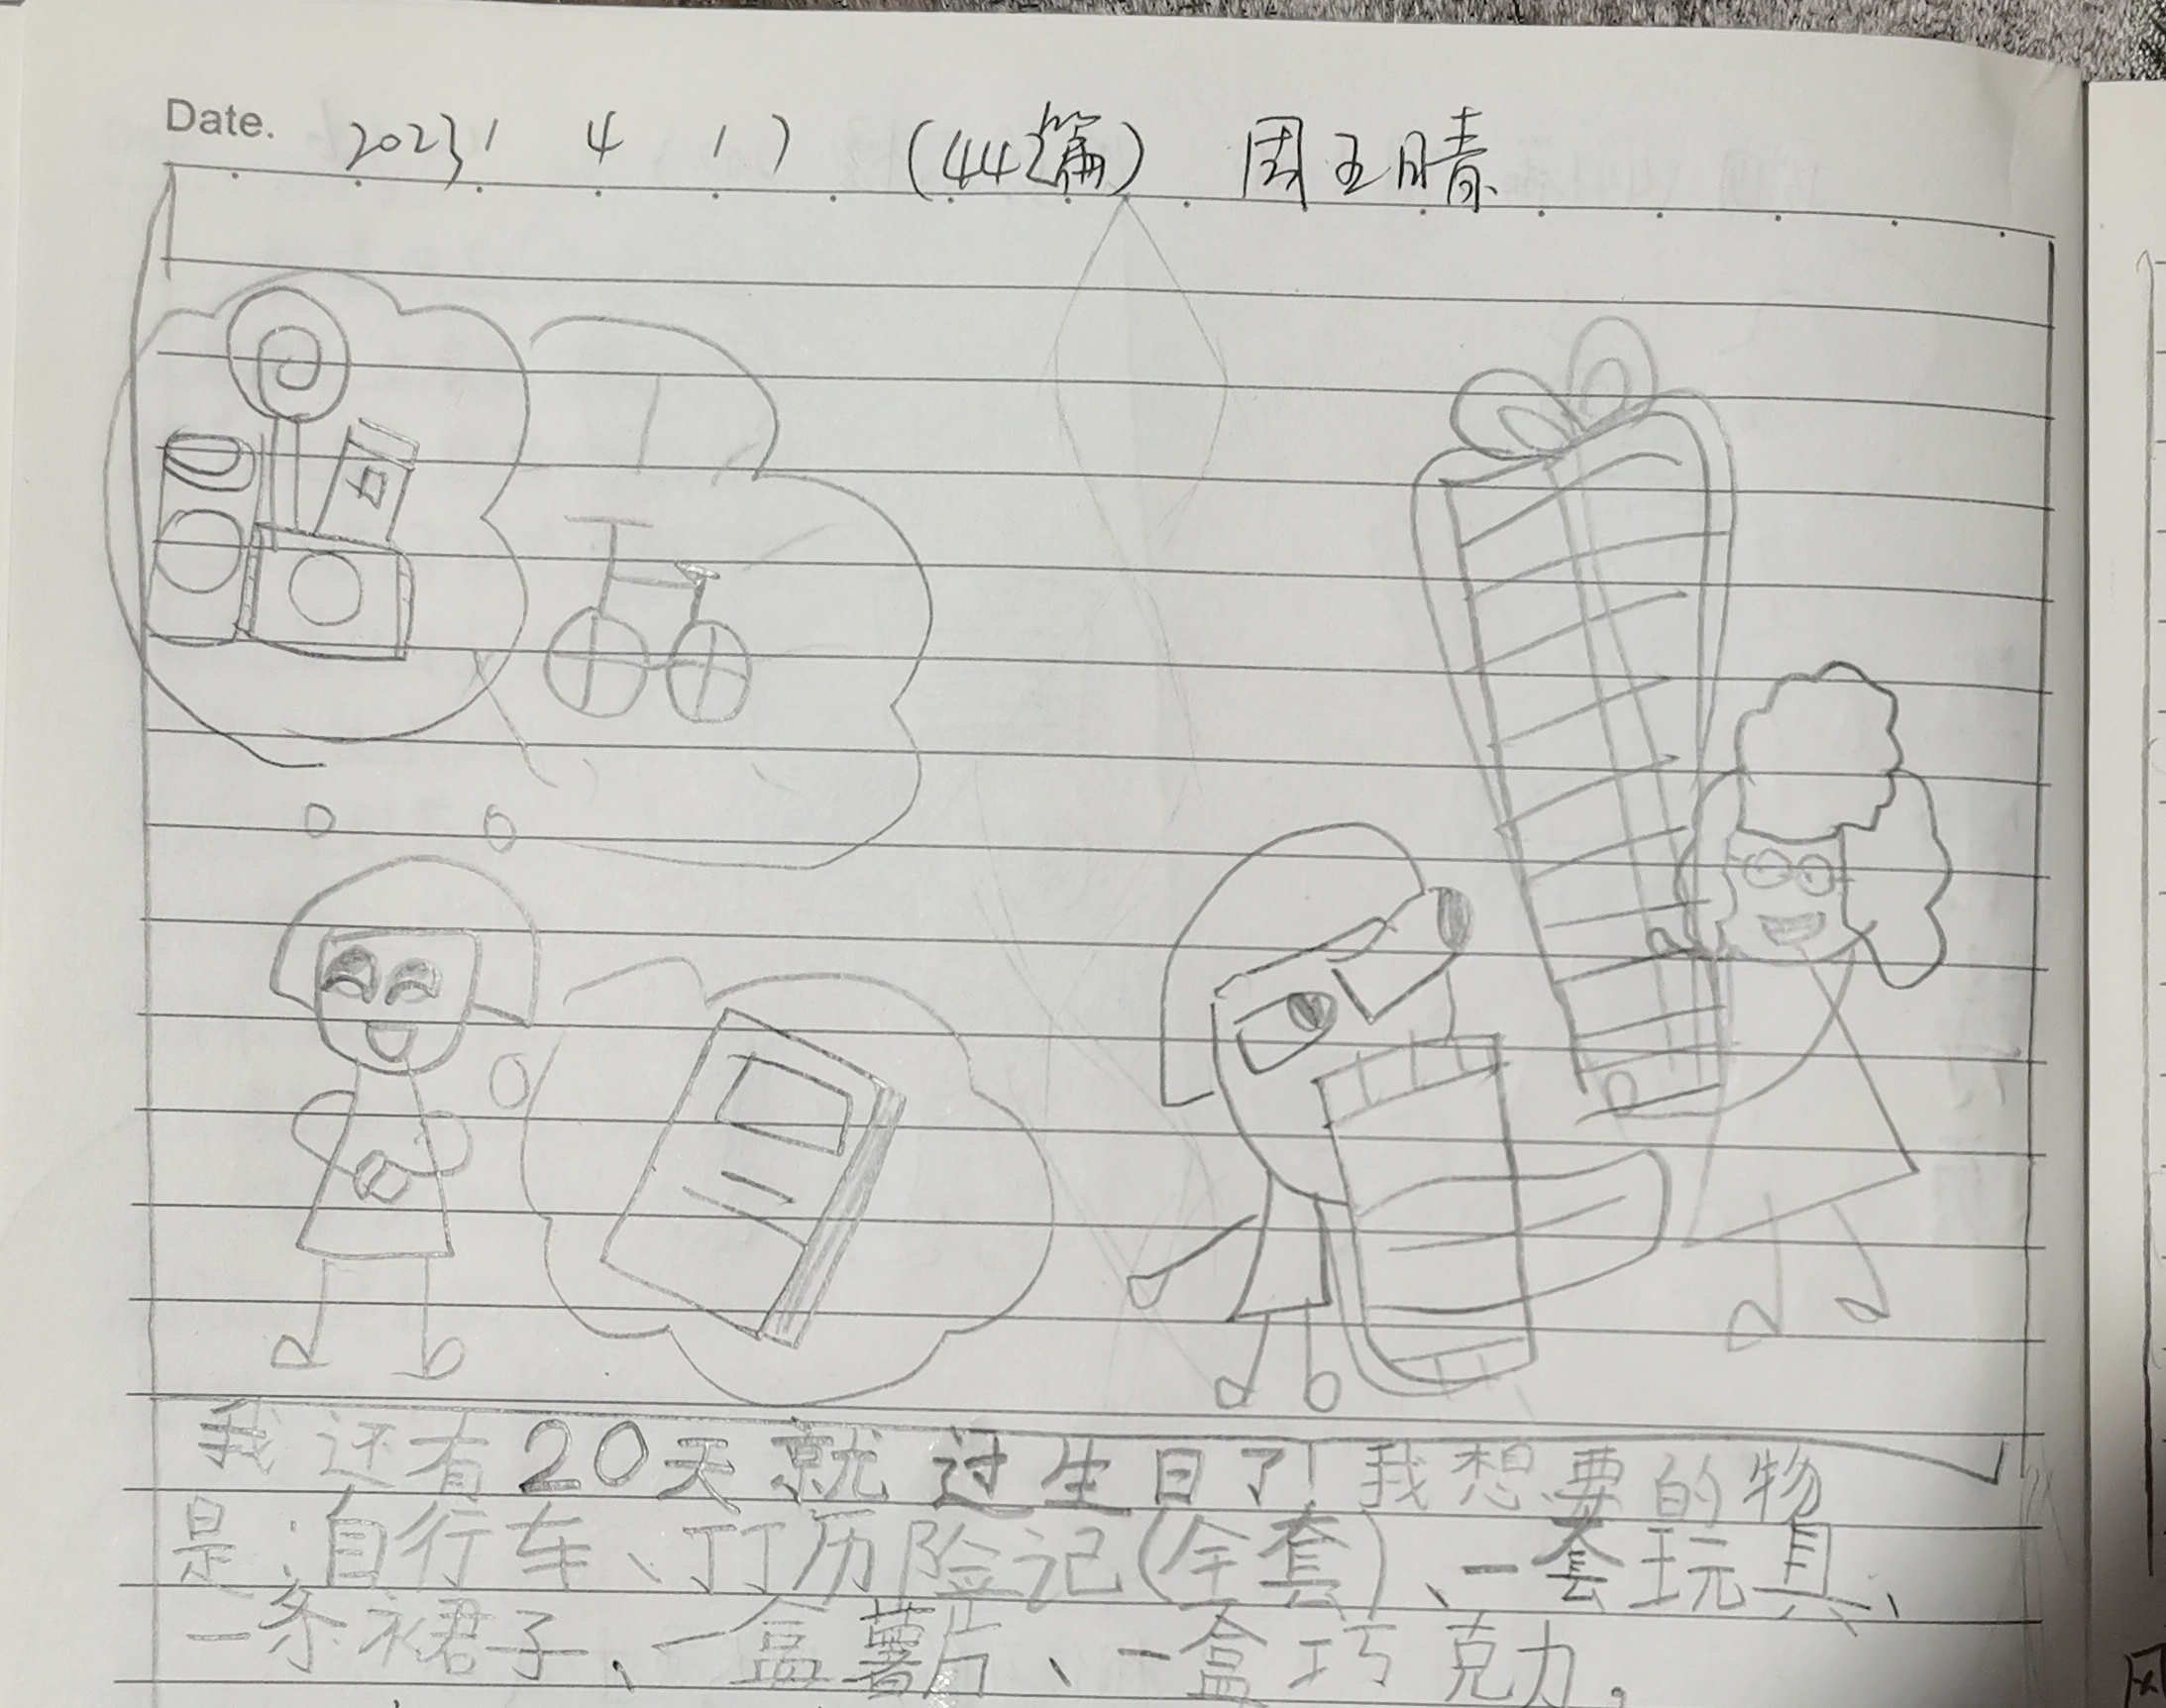 Date. 2023 4 17 (44篇) 周玉晴
我还有20天就过生日了!我想要的物
是:自行车、丁丁历险记(全套)、一套玩具、
一条裙子、一盒薯片、一盒巧克力,